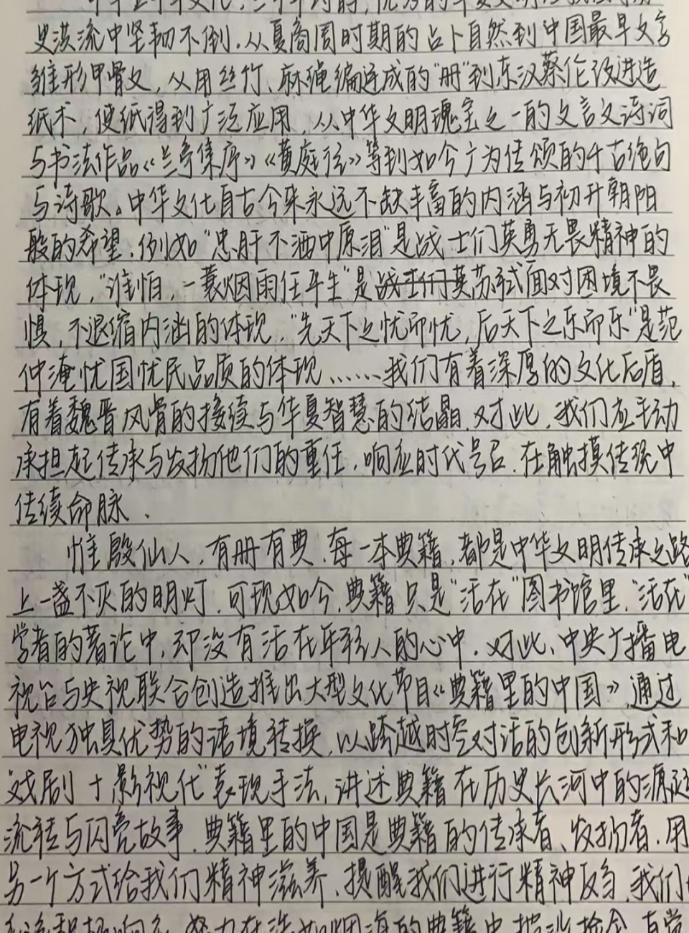 史洪流中坚韧不倒。从夏商周时期的占卜自然到中国最早文字
雏形甲骨文，从用丝竹、麻绳编连成的“册”到东汉蔡伦改进造
纸术，使纸得到广泛应用，从中华文明瑰宝之一的文言文诗词
与书法作品《兰亭集序》《黄庭经》等到如今广为传颂的千古绝句
与诗歌。中华文化自古今来永远不缺丰富的内涵与初升朝阳
般的希望，例如“忠肝不洒中原泪”是战士们英勇无畏精神的
体现，“谁怕，一蓑烟雨任平生”是苏轼面对困境不畏
惧，不退缩内涵的体现，“先天下之忧而忧，后天下之乐而乐”是范
仲淹忧国忧民品质的体现……我们有着深厚的文化后盾，
有着魏晋风骨的接续与华夏智慧的结晶，对此，我们应主动
承担起传承与发扬他们的重任，响应时代号召，在触摸传统中
传续命脉．
惟殷仙人，有册有典，每一本典籍，都是中华文明传承之路
上一盏不灭的明灯，可现如今，典籍只是“活在”图书馆里，“活在”
学者的著论中，却没有活在年轻人的心中，对此，中央广播电
视台与央视联合创造推出大型文化节目《典籍里的中国》，通过
电视独具优势的语境转换，以跨越时空对话的创新形式和
“戏剧＋影视化”表现手法，讲述典籍在历史长河中的源远
流转与闪亮故事，典籍里的中国是典籍的传承者、发扬者，用
另一个方式给我们精神滋养，提醒我们进行精神反刍，我们
努力在浩如烟海的典籍中披沙拣金